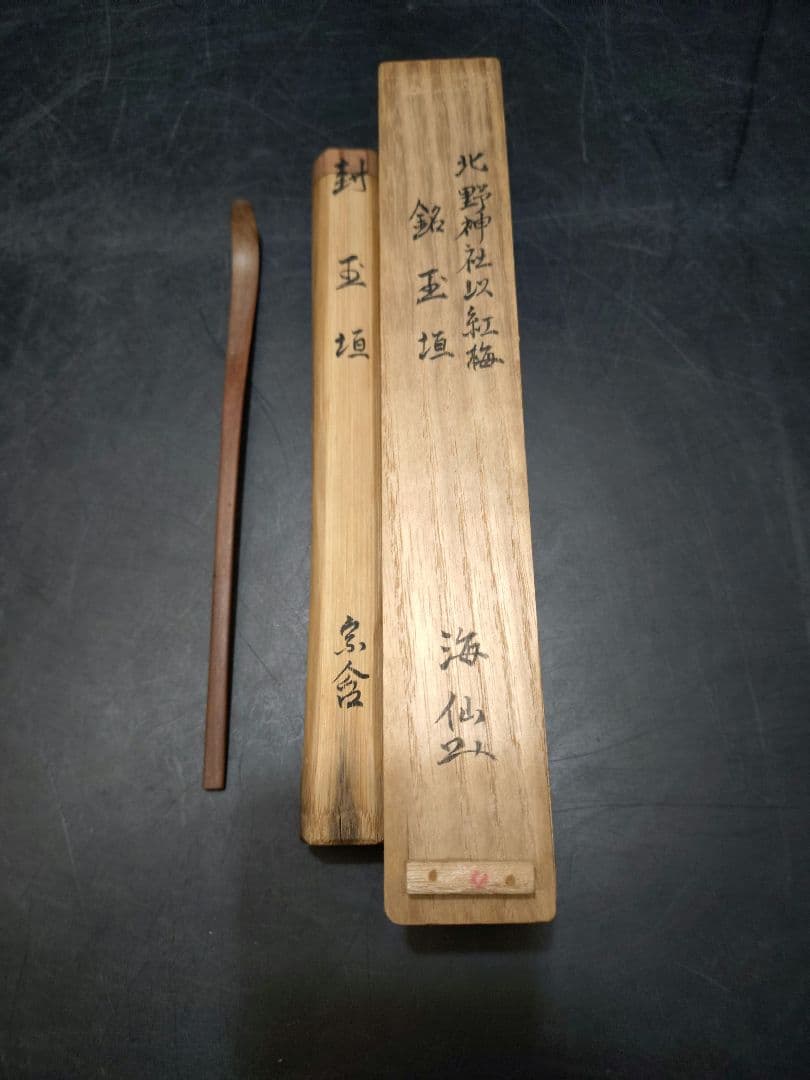 北野神社以紅梅
銘玉垣
海仙
封
玉垣
宗含